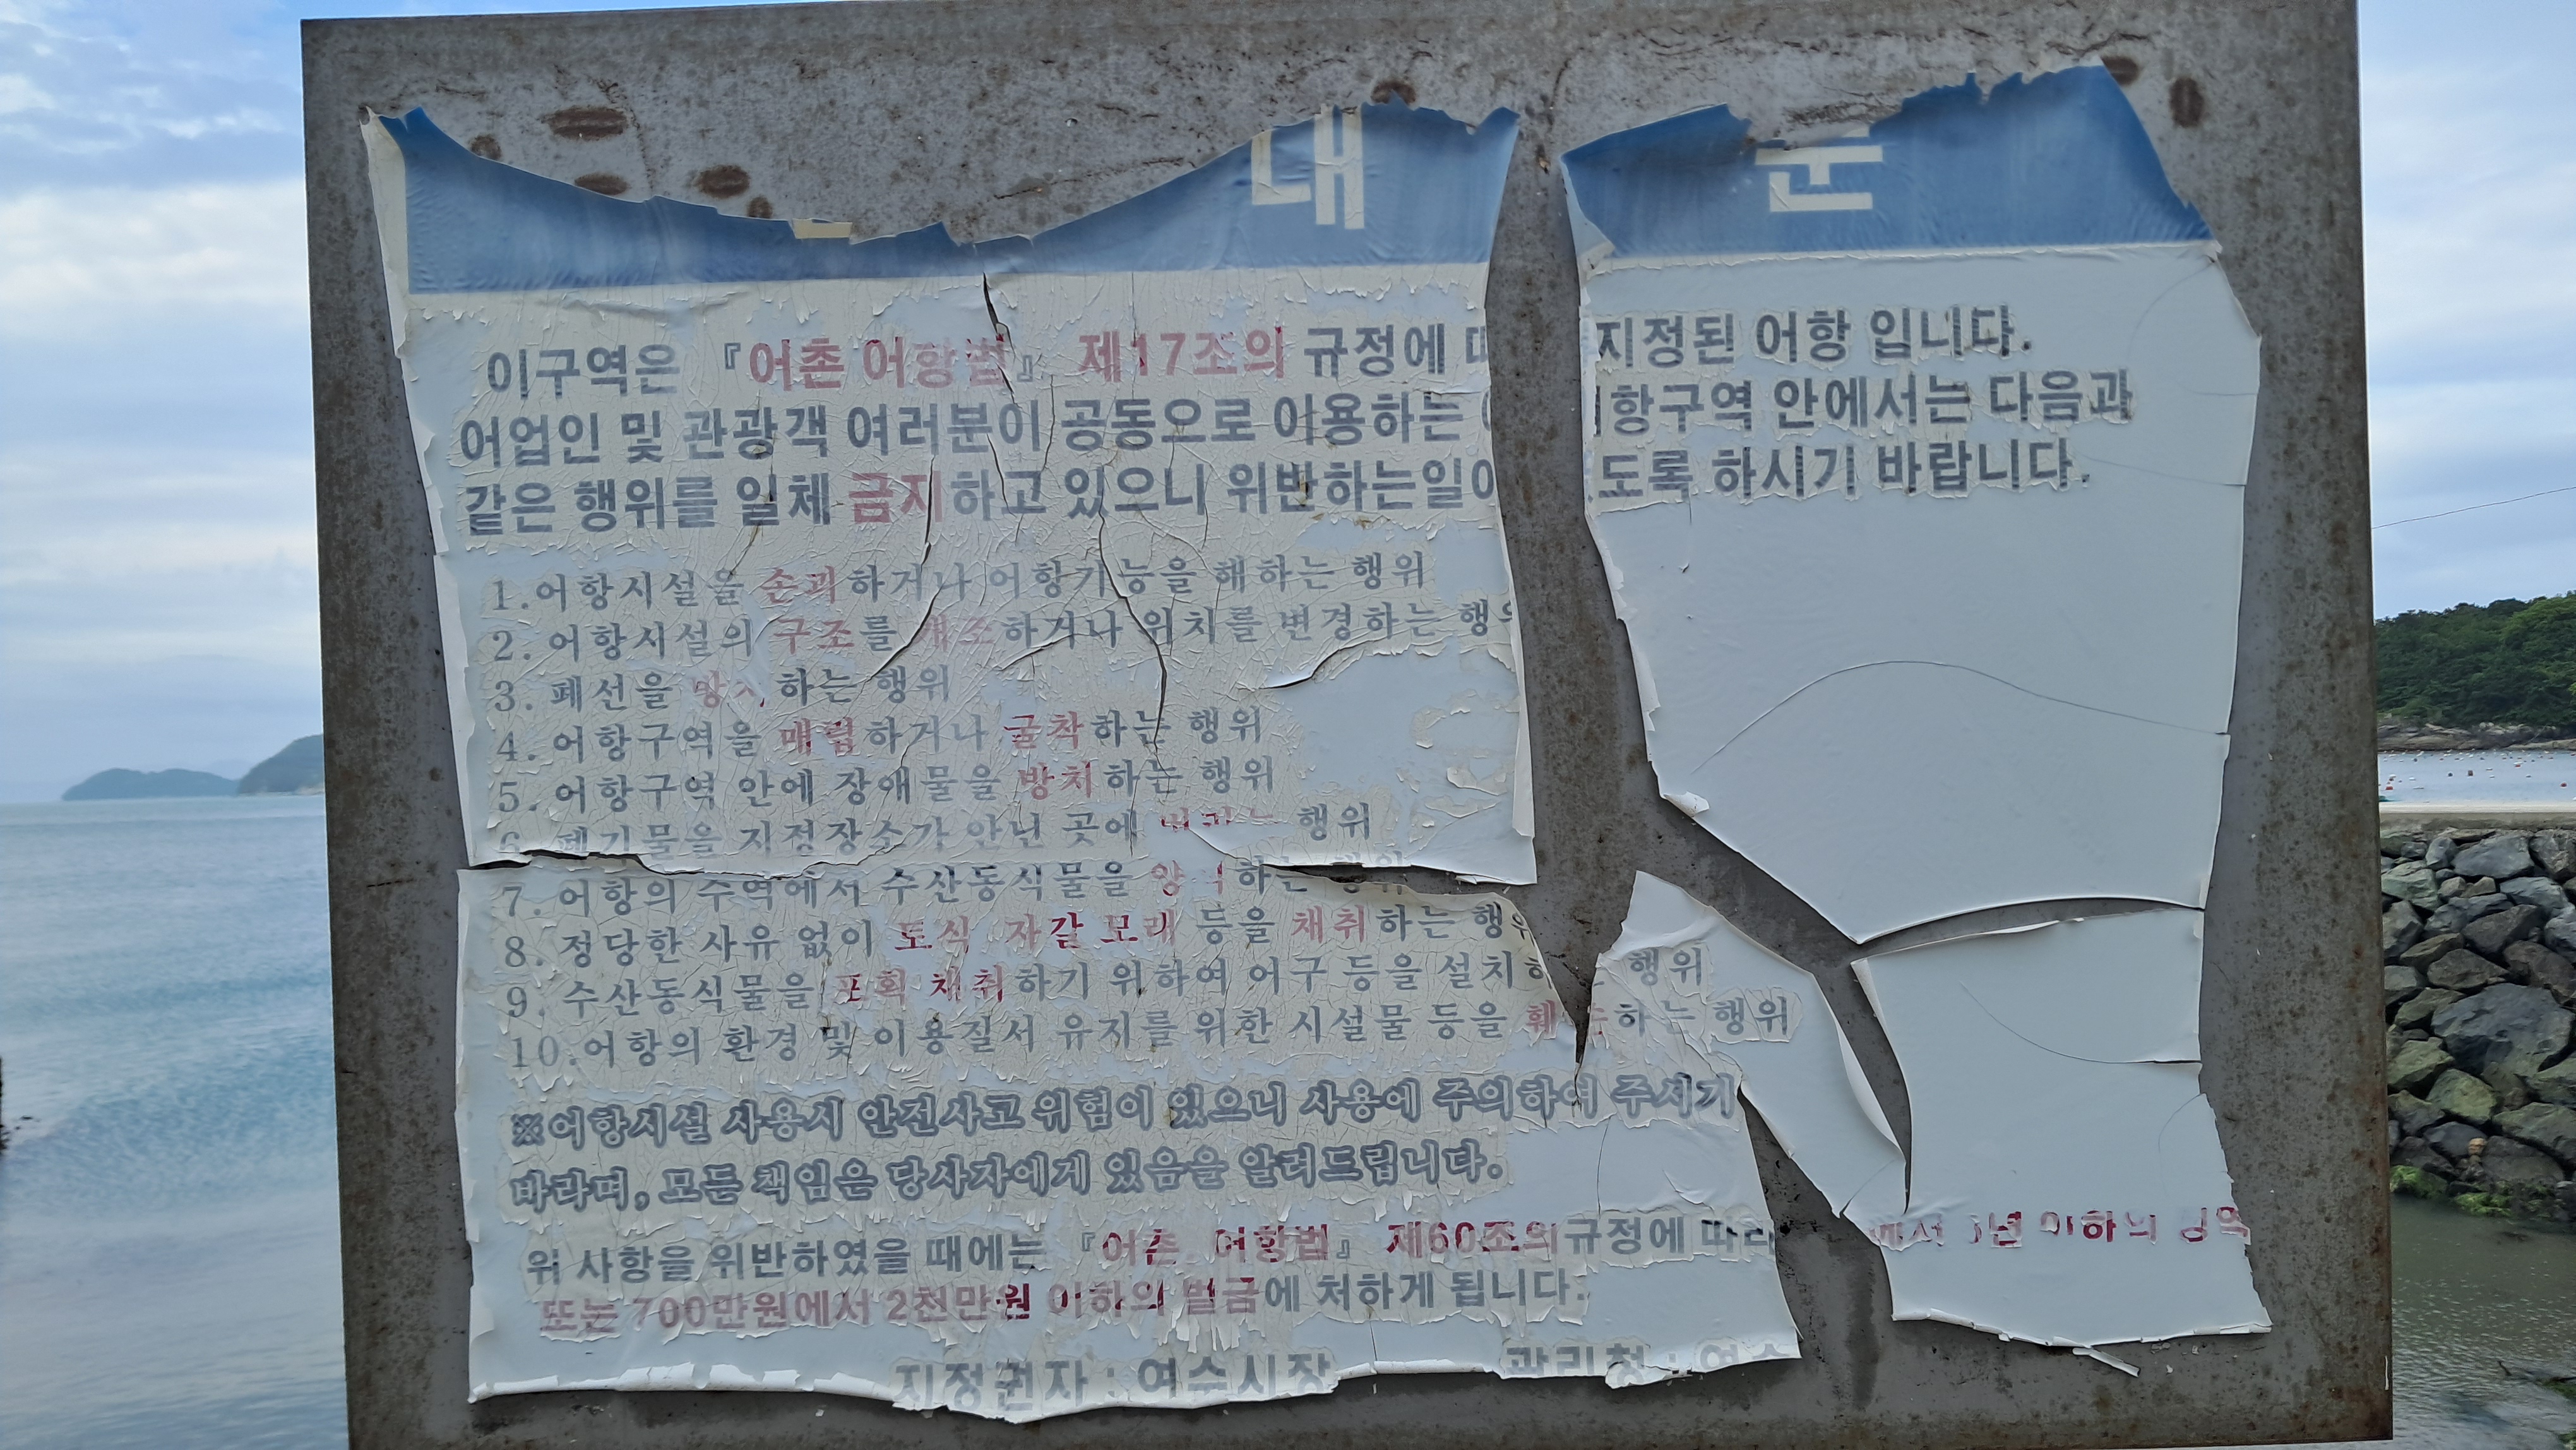 내 문
이구역은 『어촌 어항법』 제17조의 규정에 지정된 어항 입니다.
어업인 및 관광객 여러분이 공동으로 이용하는 안에서는 다음과
같은 행위를 일체 금지하고 있으니 하시기 바랍니다.
1.어항시설을 손괴하거나 어항기능을 해하는 행위
2. 어항시설의 구조를 개조하거나 위치를 변경하는 행위
3. 폐선을 하는 행위
4. 어항구역을 매립하거나 굴착하는 행위
5. 어항구역 안에 장애물을 방치하는 행위
6 폐기물을 지정장소가 안닌 곳에 버리는 행위
7. 어항의 수역에서 수산동식물을 양식하는 행위
8. 정당한 사유 없이 토석 자갈 모래 등을 채취하는 행위
9. 수산동식물을 포획 채취하기 위하여 어구 등을 행위
10.어항의 환경 및 이용질서 유지를 위한 시설물 등을 행위
※어항시설 사용시 안전사고 위험이 있으니 사용에 주의하여 주시기
바라며, 모든 책임은 당사자에게 있음을 알려드립니다.
위 사항을 위반하였을 때에는 『어촌 어항법』 제60조의규정에 따라 이하의 징역
또는 700만원에서 2천만원 이하의 벌금에 처하게 됩니다.
지정권자 : 여수시장 관리청 :